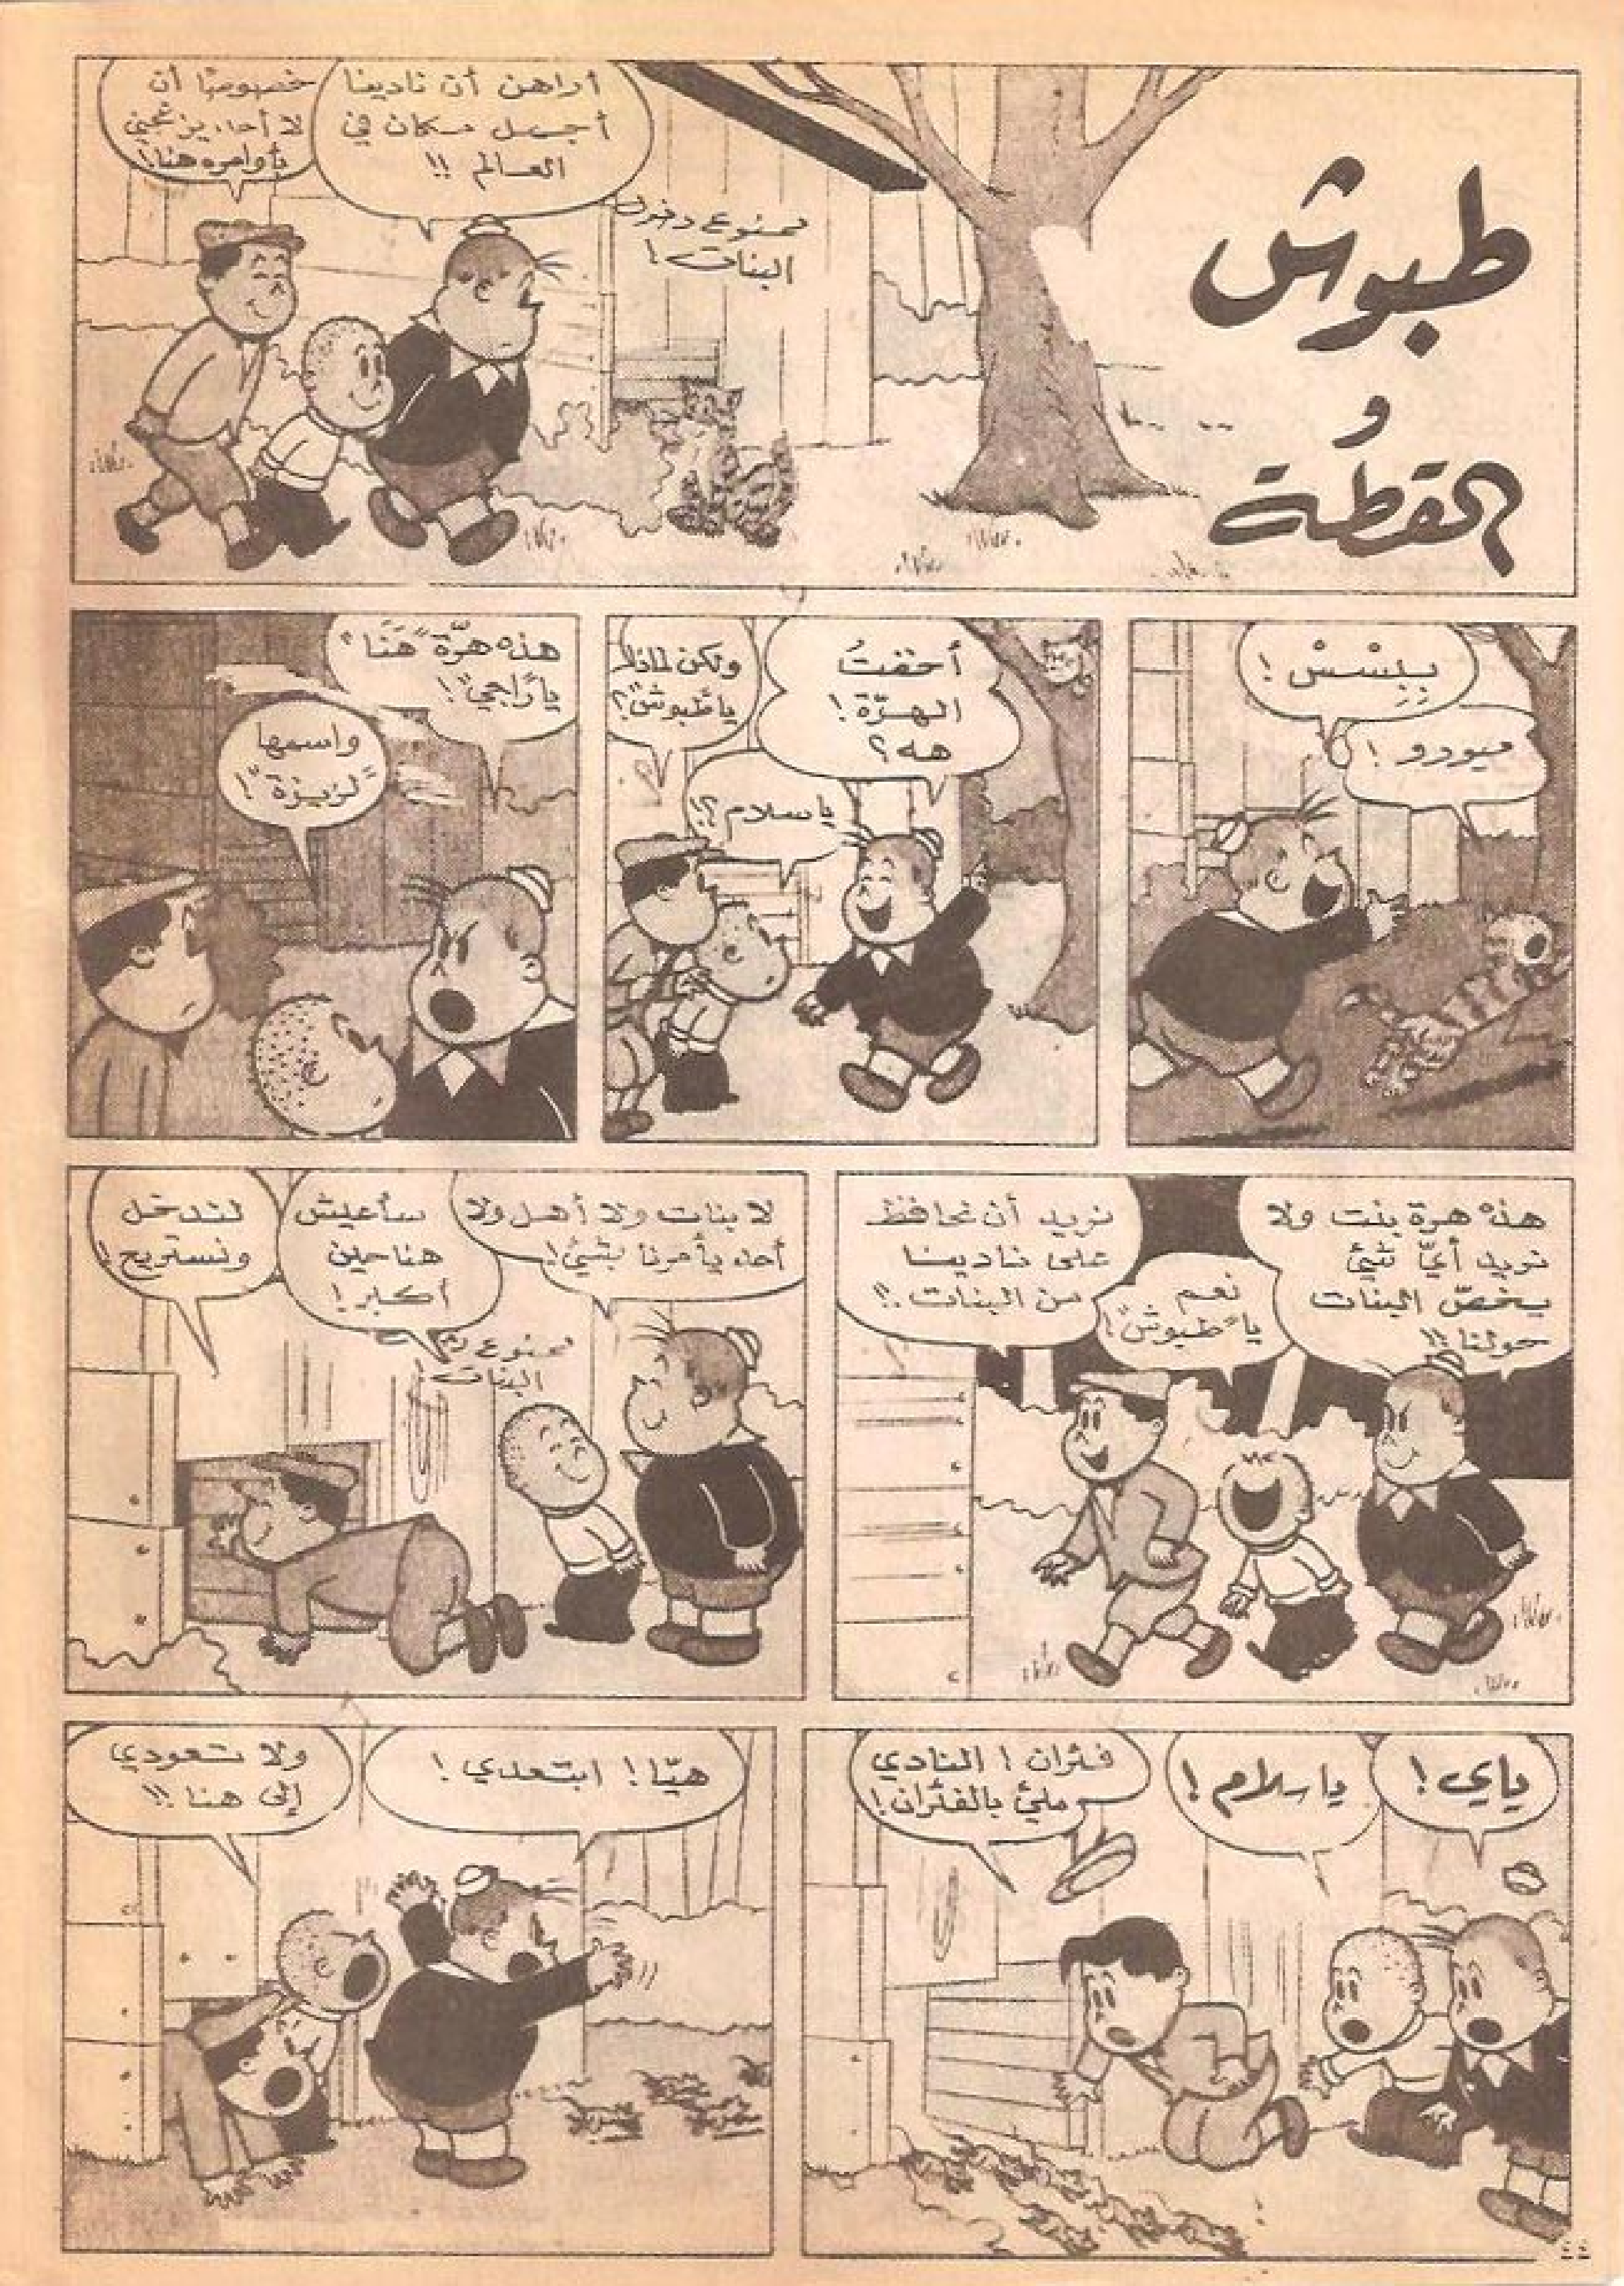 طبوش
و
القطة
أراهن أن نادينا
أجمل مكان في
العالم !!
خصوصًا أن
لا أحد يزعجني
بأوامره هنا!
ممنوع دخول
البنات!
بِبِسْسْ!
ميورو!
أخفتُ
الهرّة!
هه؟
ولكن لماذا
يا"طبوش"؟
يا سلام؟!
هذه هرّة "هَنَا"
يا"راجي"!
واسمها
"لزيزة"!
هذه هرة بنت ولا
نريد أيّ شيْ
يخصّ البنات
حولنا!!
نعم
يا"طبوش"!
نريد أن نحافظ
على نادينا
من البنات!!
لا بنات ولا أهل ولا
أحد يأمرنا بشيْ!
سأعيش
هنا حين
أكبر!
لندخل
ونستريح!
ممنوع
البنات!
ياي!
يا سلام!
فئران! النادي
مليْ بالفئران!
هيّا! ابتعدي!
ولا تعودي
إلى هنا!!
٤٤